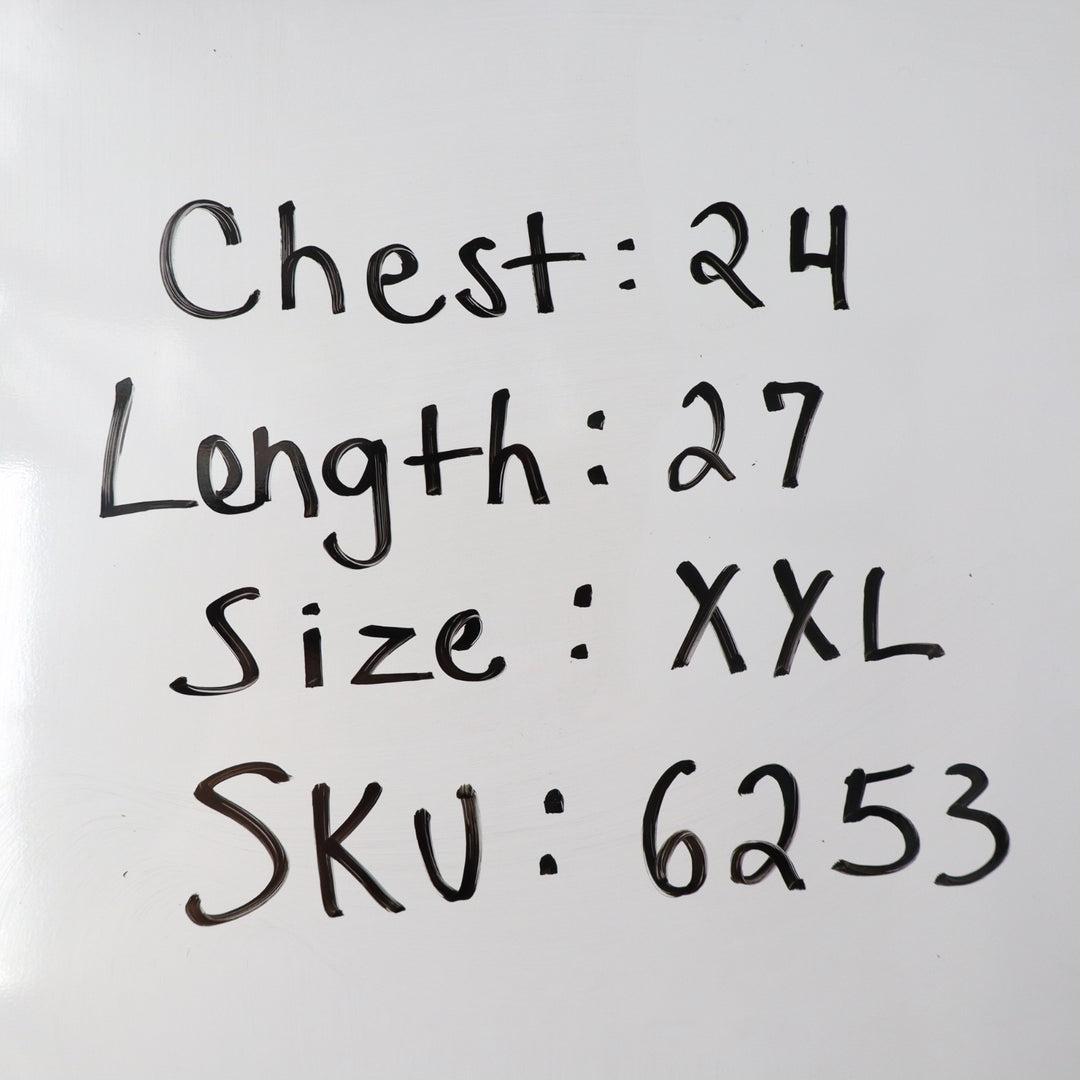 Chest: 24
Length: 27
Size: XXL
SKU: 6253